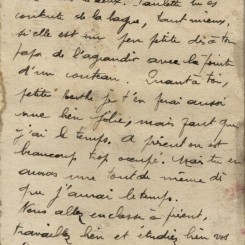 Paulette tu es
contente de la bague, tant mieux,
si elle est un peu petite dis à ton
papa de l'agrandir avec la pointe
d'un couteau. Quant à toi,
petite berthe je t'en ferai aussi
une bien jolie, mais faut que
j'ai le temps. A présent on est
beaucoup trop occupé. Mais tu en
auras une tout de même dès
que j'aurai le temps.
Vous allez en classe à présent,
travaillez bien et étudiez bien vos